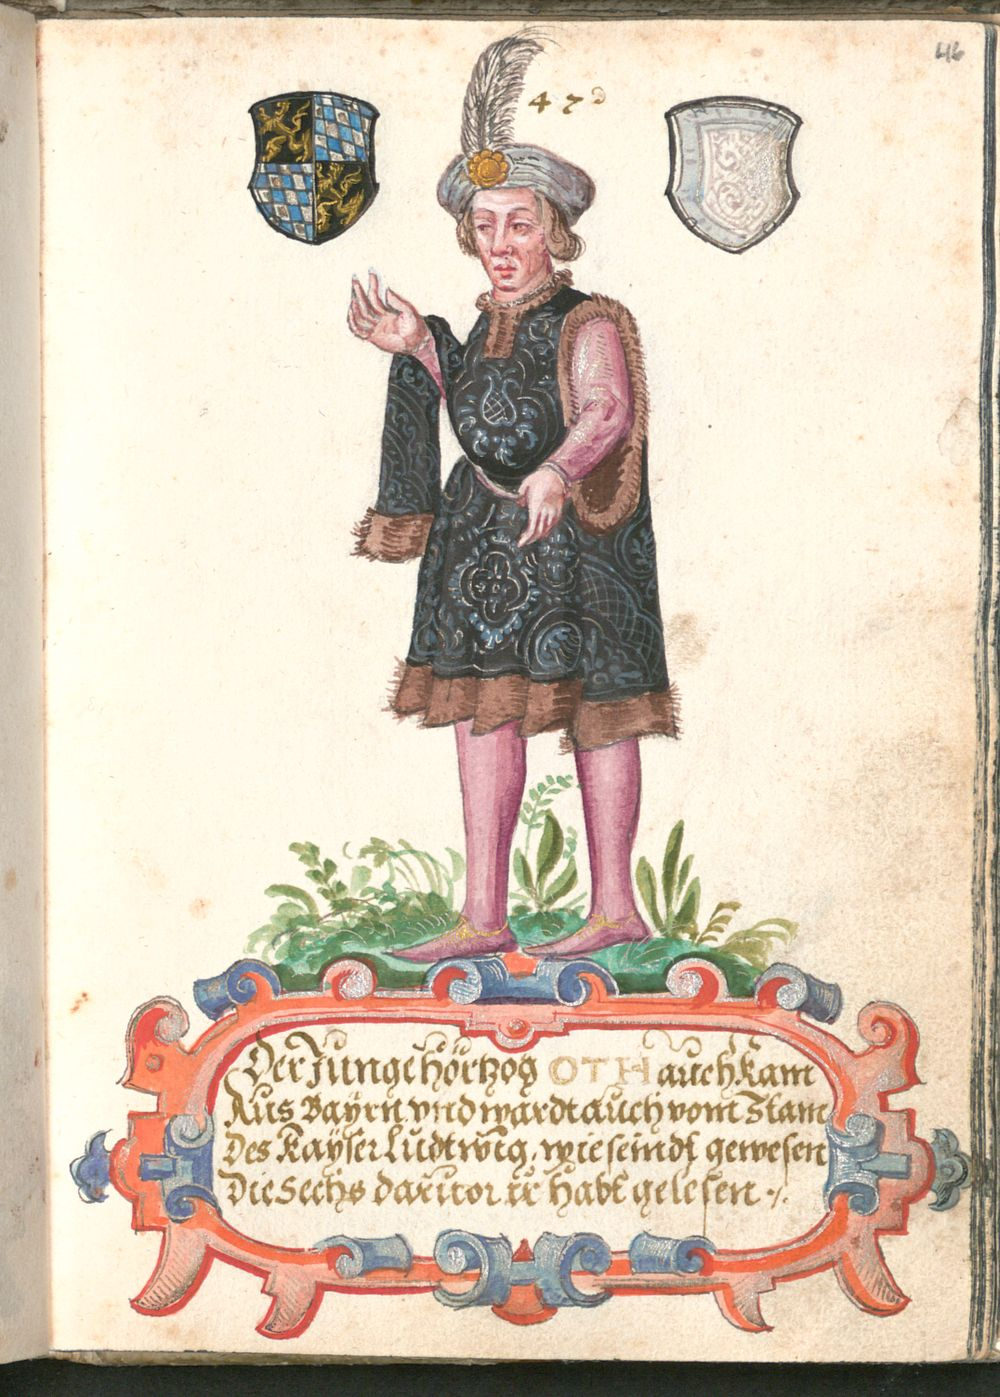 46
47
Der Junge hörtzog OTH auch kam
Aus Bayrn vnd wardt auch vom Stam
Des Kayser Ludtwig, wie seindt gewesen
Die Sechs daruor ir habt gelesen